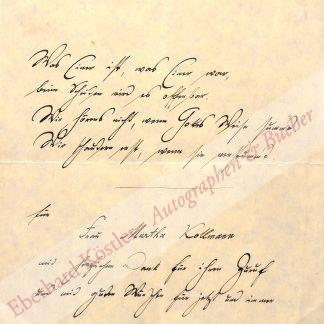 Was Einer ist, was Einer war,
beim Scheiden wird es offenbar.
Wir hörens nicht, wenn Gottes Weise summt
Wir schaudern erst, wenn sie verstummt.
für
Frau Martha Kollmann
mit herzlichem Dank für ihren Zuruf
und mit guten Wünschen für jetzt und immer
Eberhard Köstler Autographen & Bücher